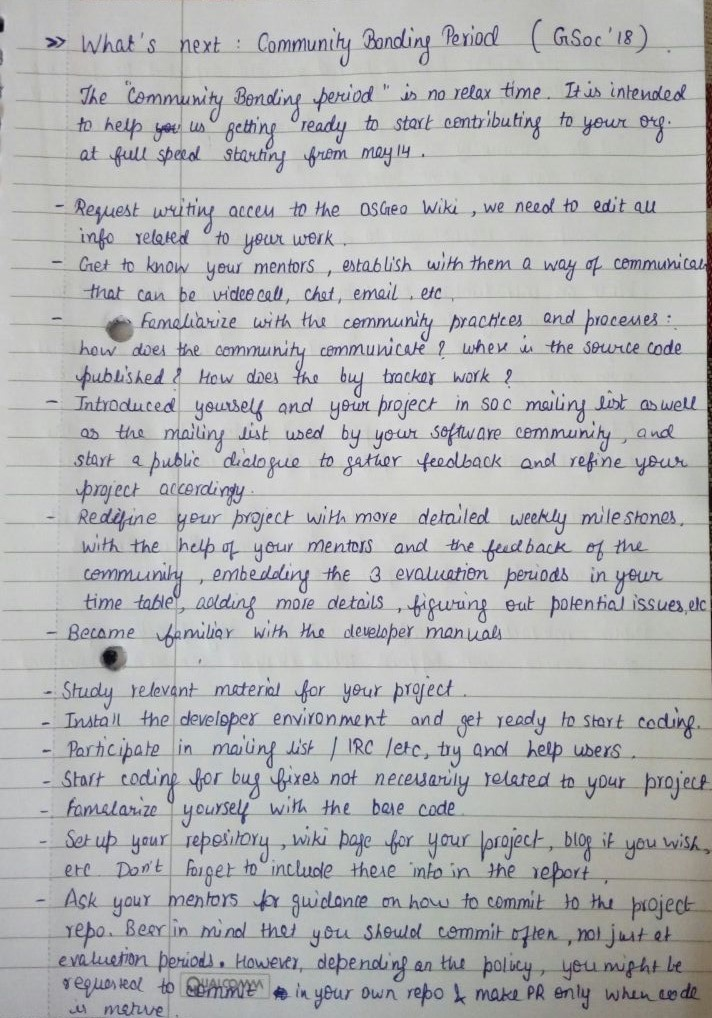 >> What's next : Community Bonding Period ( GSoc'18 ) .
The "Community Bonding period" is no relax time. It is intended
to help you us getting ready to start contributing to your org.
at full speed starting from may 14 .
- Request writing access to the OSGeo Wiki , we need to edit all
info related to your work .
- Get to know your mentors , establish with them a way of communicat
that can be video call, chat, email . etc .
- Famaliarize with the community practices and processes :
how does the community communicate ? when is the source code
published ? How does the buy tracker work ?
- Introduced yourself and your project in soc mailing list as well
as the mailing list used by your software community , and
start a public dialogue to gather feedback and refine your
project accordingy .
- Redefine your project with more detailed weekly milestones,
with the help of your mentors and the feedback of the
community , embedding the 3 evaluation periods in your
time table , adding more details , figuring out potential issues, etc
- Became familiar with the developer manuals
- Study relevant material for your project .
- Install the developer environment and get ready to start coding.
- Participate in mailing list / IRC /etc, try and help users .
- Start coding for bug fixes not necessarily related to your project
- Famalarize yourself with the base code .
- Set up your repository , wiki page for your project , blog if you wish,
etc . Don't forget to include these into in the report .
- Ask your mentors for guidance on how to commit to the project
repo. Bear in mind that you should commit often , not just at
evaluation periods. However, depending on the policy , you might be
requested to commit in your own repo & make PR only when code
is mature .
QUALCOMM